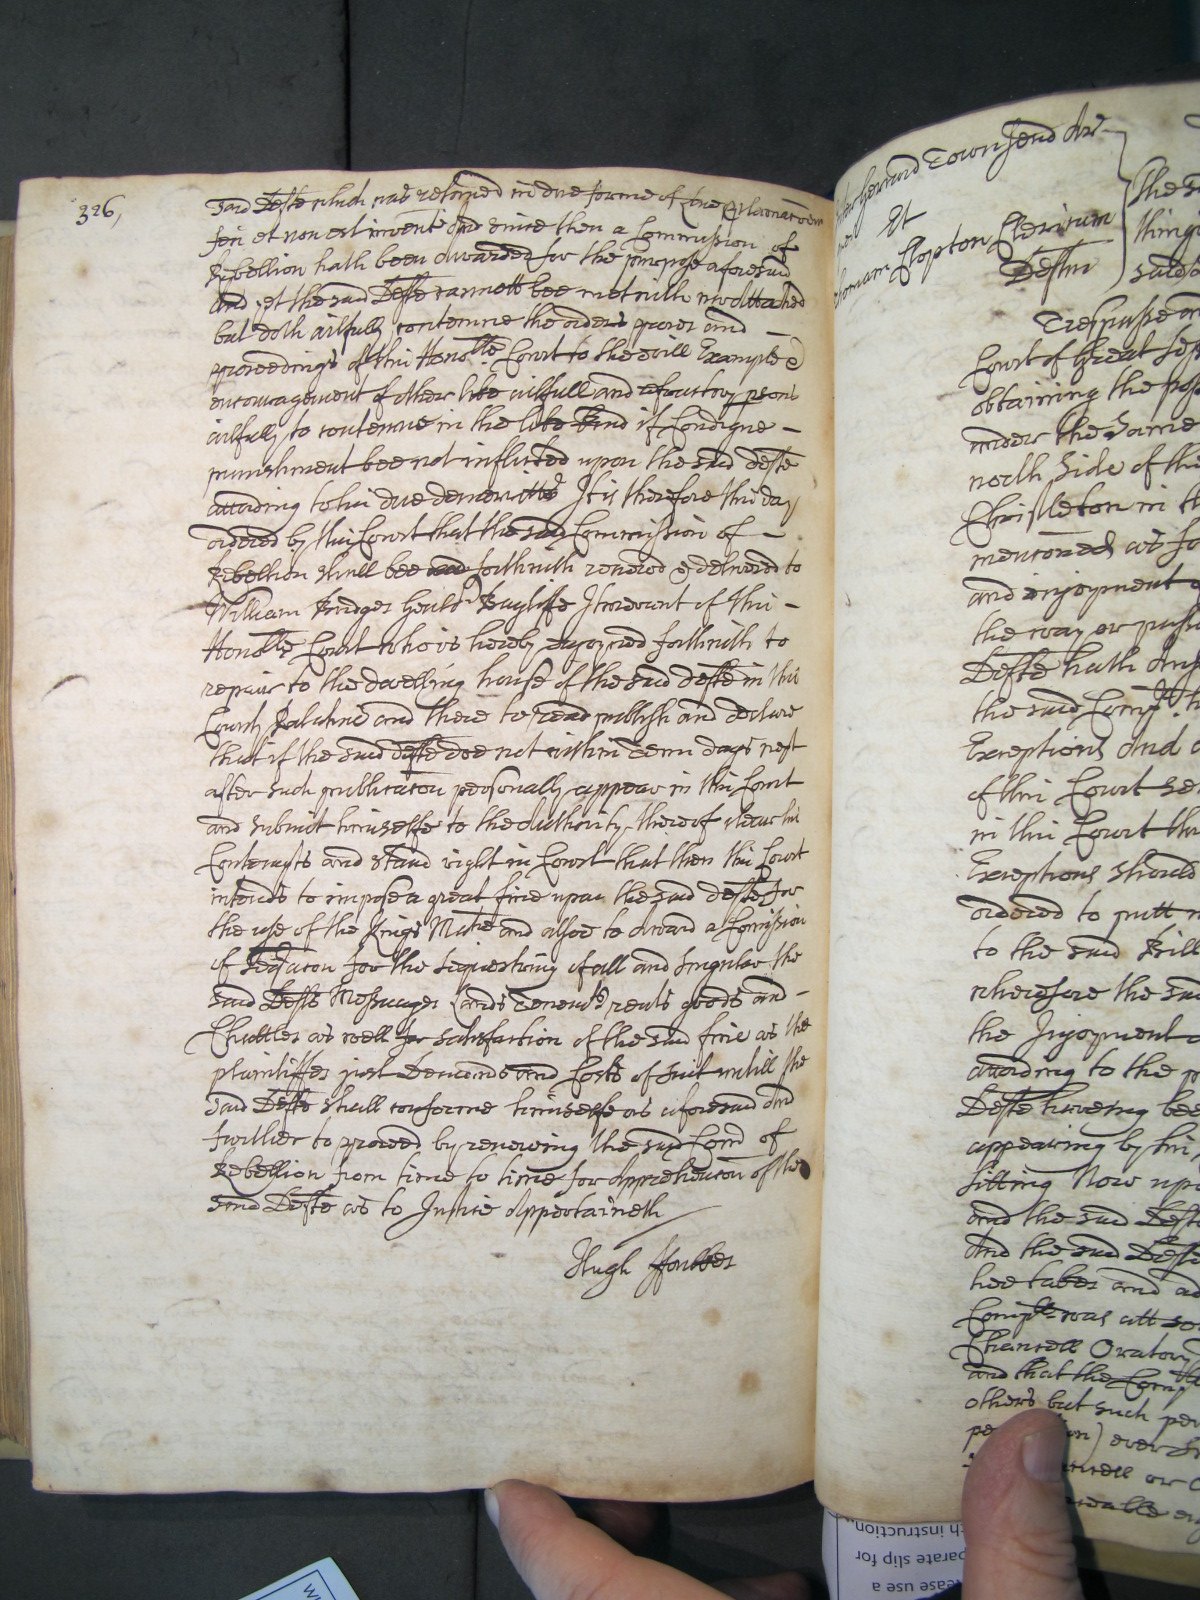 326,
said Defte which was retorned in due forme of Lawe Proclamacoem
feci et non est invent And since then a Commission of
Rebellion hath been Awarded for the purpose aforesaid
And yet the said Defte cannott bee mett with nor Attached
but doth wilfully contemne the orders power and
proceedings of this Honoble Court to the evill Example &
encouragement of others like wilfull and refractory psons
wilfully to contemne in the like kind if Condigne
punishment bee not inflicted upon the said Defte
according to his due demeritts It is therefore this day
ordered by this Court that the said Commission of
Rebellion shall bee forthwith renewed & delivered to
William Bridges Bayliffe Itinerant of this
Honoble Court who is hereby enjoyned forthwith to
repair to the dwelling house of the said Defte in this
County Palatine and there to read publish and declare
that if the said Defte doe not within Tenn days next
after such publicacon personally appear in this Court
and submit himselfe to the Authority thereof clear his
Contempts and stand right in Court that then this Court
intends to impose a great fine upon the said Defte for
the use of the Kings Matie and alsoe to Award a Comission
of Seqracon for the sequestring of all and singular the
said Defts Messuages Lands Tenemts rents goods and
Chattles as well for satisfaction of the said fine as the
plaintiffes just Demands and Costs of suit untill the
said Defte shall conforme himselfe as aforesaid And
further to proceed by renewing the said Com of
Rebellion from time to time for Apprehencon of the
said Defte as to Justice Appertaineth
Hugh ffoulkes
Gerrard Townsend Ar
Et
Clopton Clericum
Deften
The s
things
said
Trespasse an
Court of Great Ses
obtaining the poss
under the Same
north side of thi
Christleton in th
menconed as fo
and enjoyment o
the way or passa
Defte hath Ans
the said Compt
Exceptions And a
of this Court se
in this Court tha
Exceptions should
ordered to putt
to the said Bill
wherefore the sa
the Injoyment
according to the p
Defte haveing bee
appearing by his
sitting Now upo
and the said Deft
And the said Defte
hee takes and ad
Complt was att so
Chancell Oratory
and that the Comp
others but such per
ever s